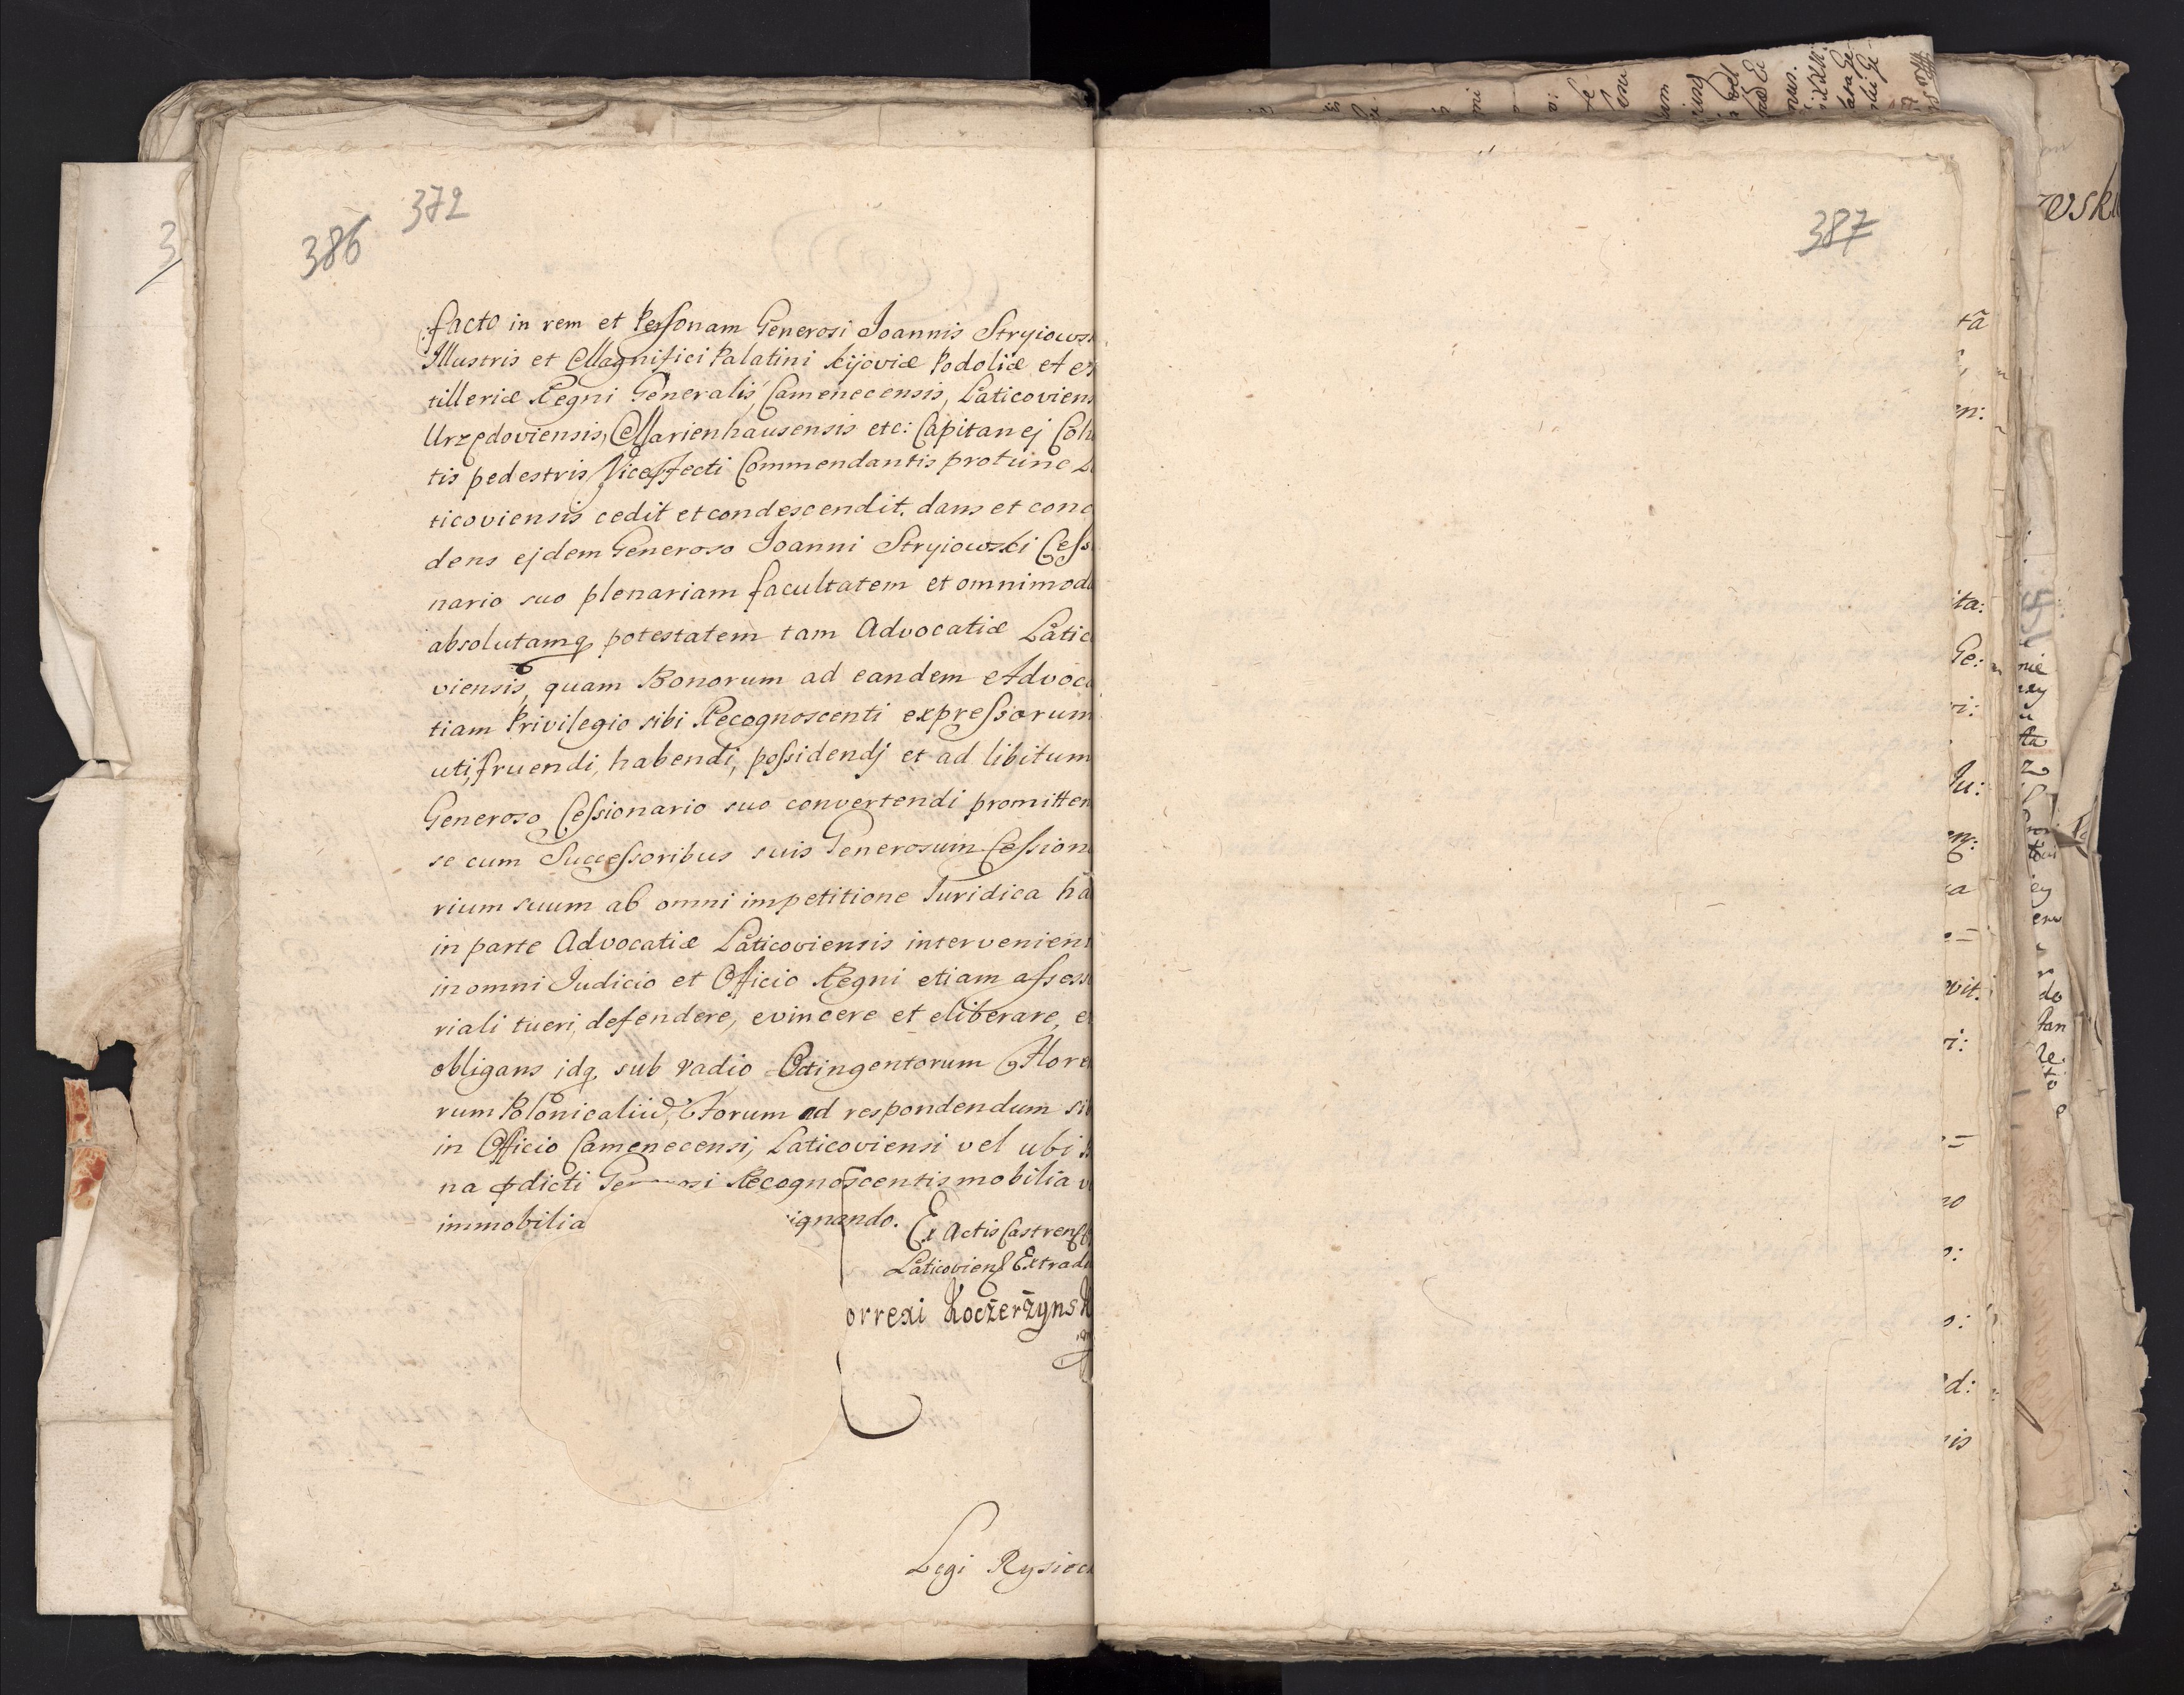 372
386
387
facto in rem et Personam Generosi Joannis Stryiows
Illustris et Magnifici Palatini Kijoviæ Podoliæ et er
tilleriæ Regni Generalis, Camenecensis, Laticoviens
Urzędoviensis, Marienhausensis etc: Capitanej Coh
tis pedestris Commendantis protunc La
ticoviensis cedit et condescendit. dans et conc
dens ejdem Generoso Joanni Stryiowski Cesso
nario suo plenariam facultatem et omnimoda
absolutamq potestatem tam Advocatiæ Latico
viensis, quam Bonorum ad eandem Advoca
tiam Privilegio sibi Recognoscenti expressorum
uti, fruendi, habendi, possidendj et ad libitum
Generoso Cessionario suo convertendi promitten
se cum Successoribus suis Generosum Cessiona
rium suum ab omni impetitione Iuridica ha
in parte Advocatiæ Laticoviensis intervenient
in omni Judicio et Officio Regni etiam assesso
riali tueri, defendere, evincere et eliberare, et
obligans idq. sub vadio Octingentorum Flore
rum Polonicaliū, Forum ad respondendum sib
in Officio Camenecensi, Laticoviensi vel ubi
na pdicti Recognoscentis mobilia v
immobilia ignando.
Ex Actis Castrens
Laticoviens Extrad
orrexi Koczerzynsk
Legi Rysioc